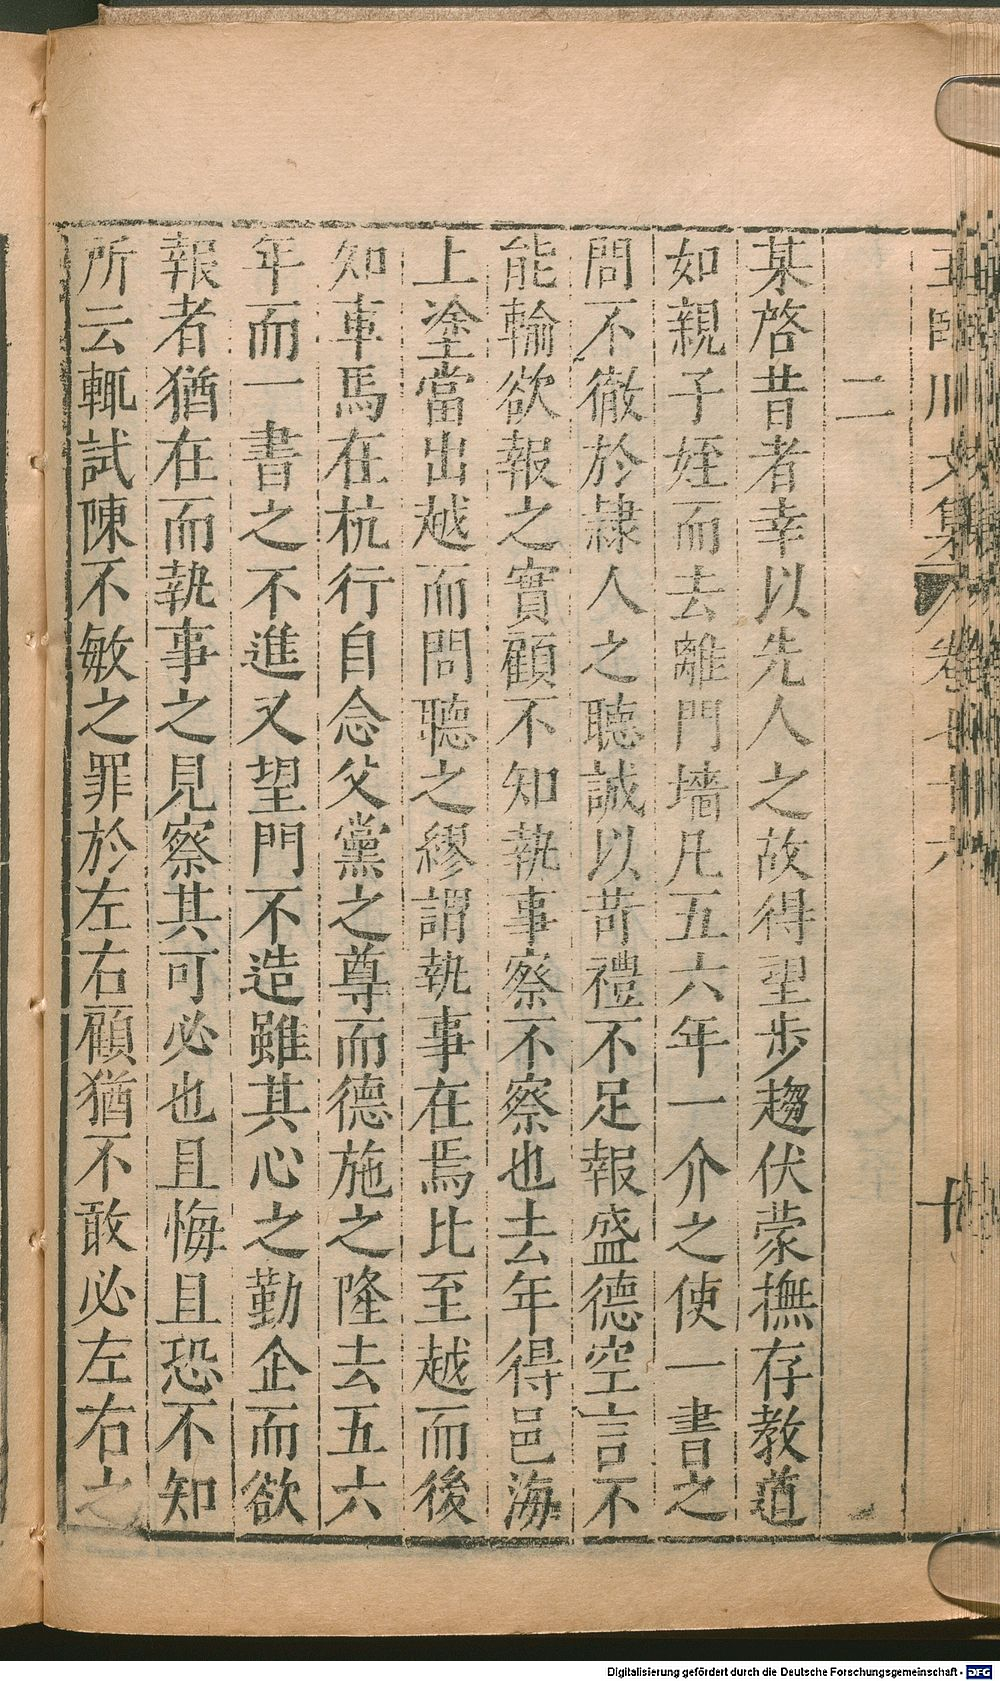 王臨川文集 卷七十六 十
二
某啓昔者幸以先人之故得望步趨伏蒙撫存教道
如親子姪而去離門墻凡五六年一介之使一書之
問不徹於隷人之聽誠以苛禮不足報盛德空言不
能輪欲報之實顧不知執事察不察也去年得邑海
上塗當出越而問聽之繆謂執事在焉比至越而後
知車馬在杭行自念父黨之尊而德施之隆去五六
年而一書之不進又望門不造雖其心之勤企而欲
報者猶在而執事之見察其可必也且悔且恐不知
所云輒試陳不敏之罪於左右顧猶不敢必左右之
Digitalisierung gefördert durch die Deutsche Forschungsgemeinschaft - DFG